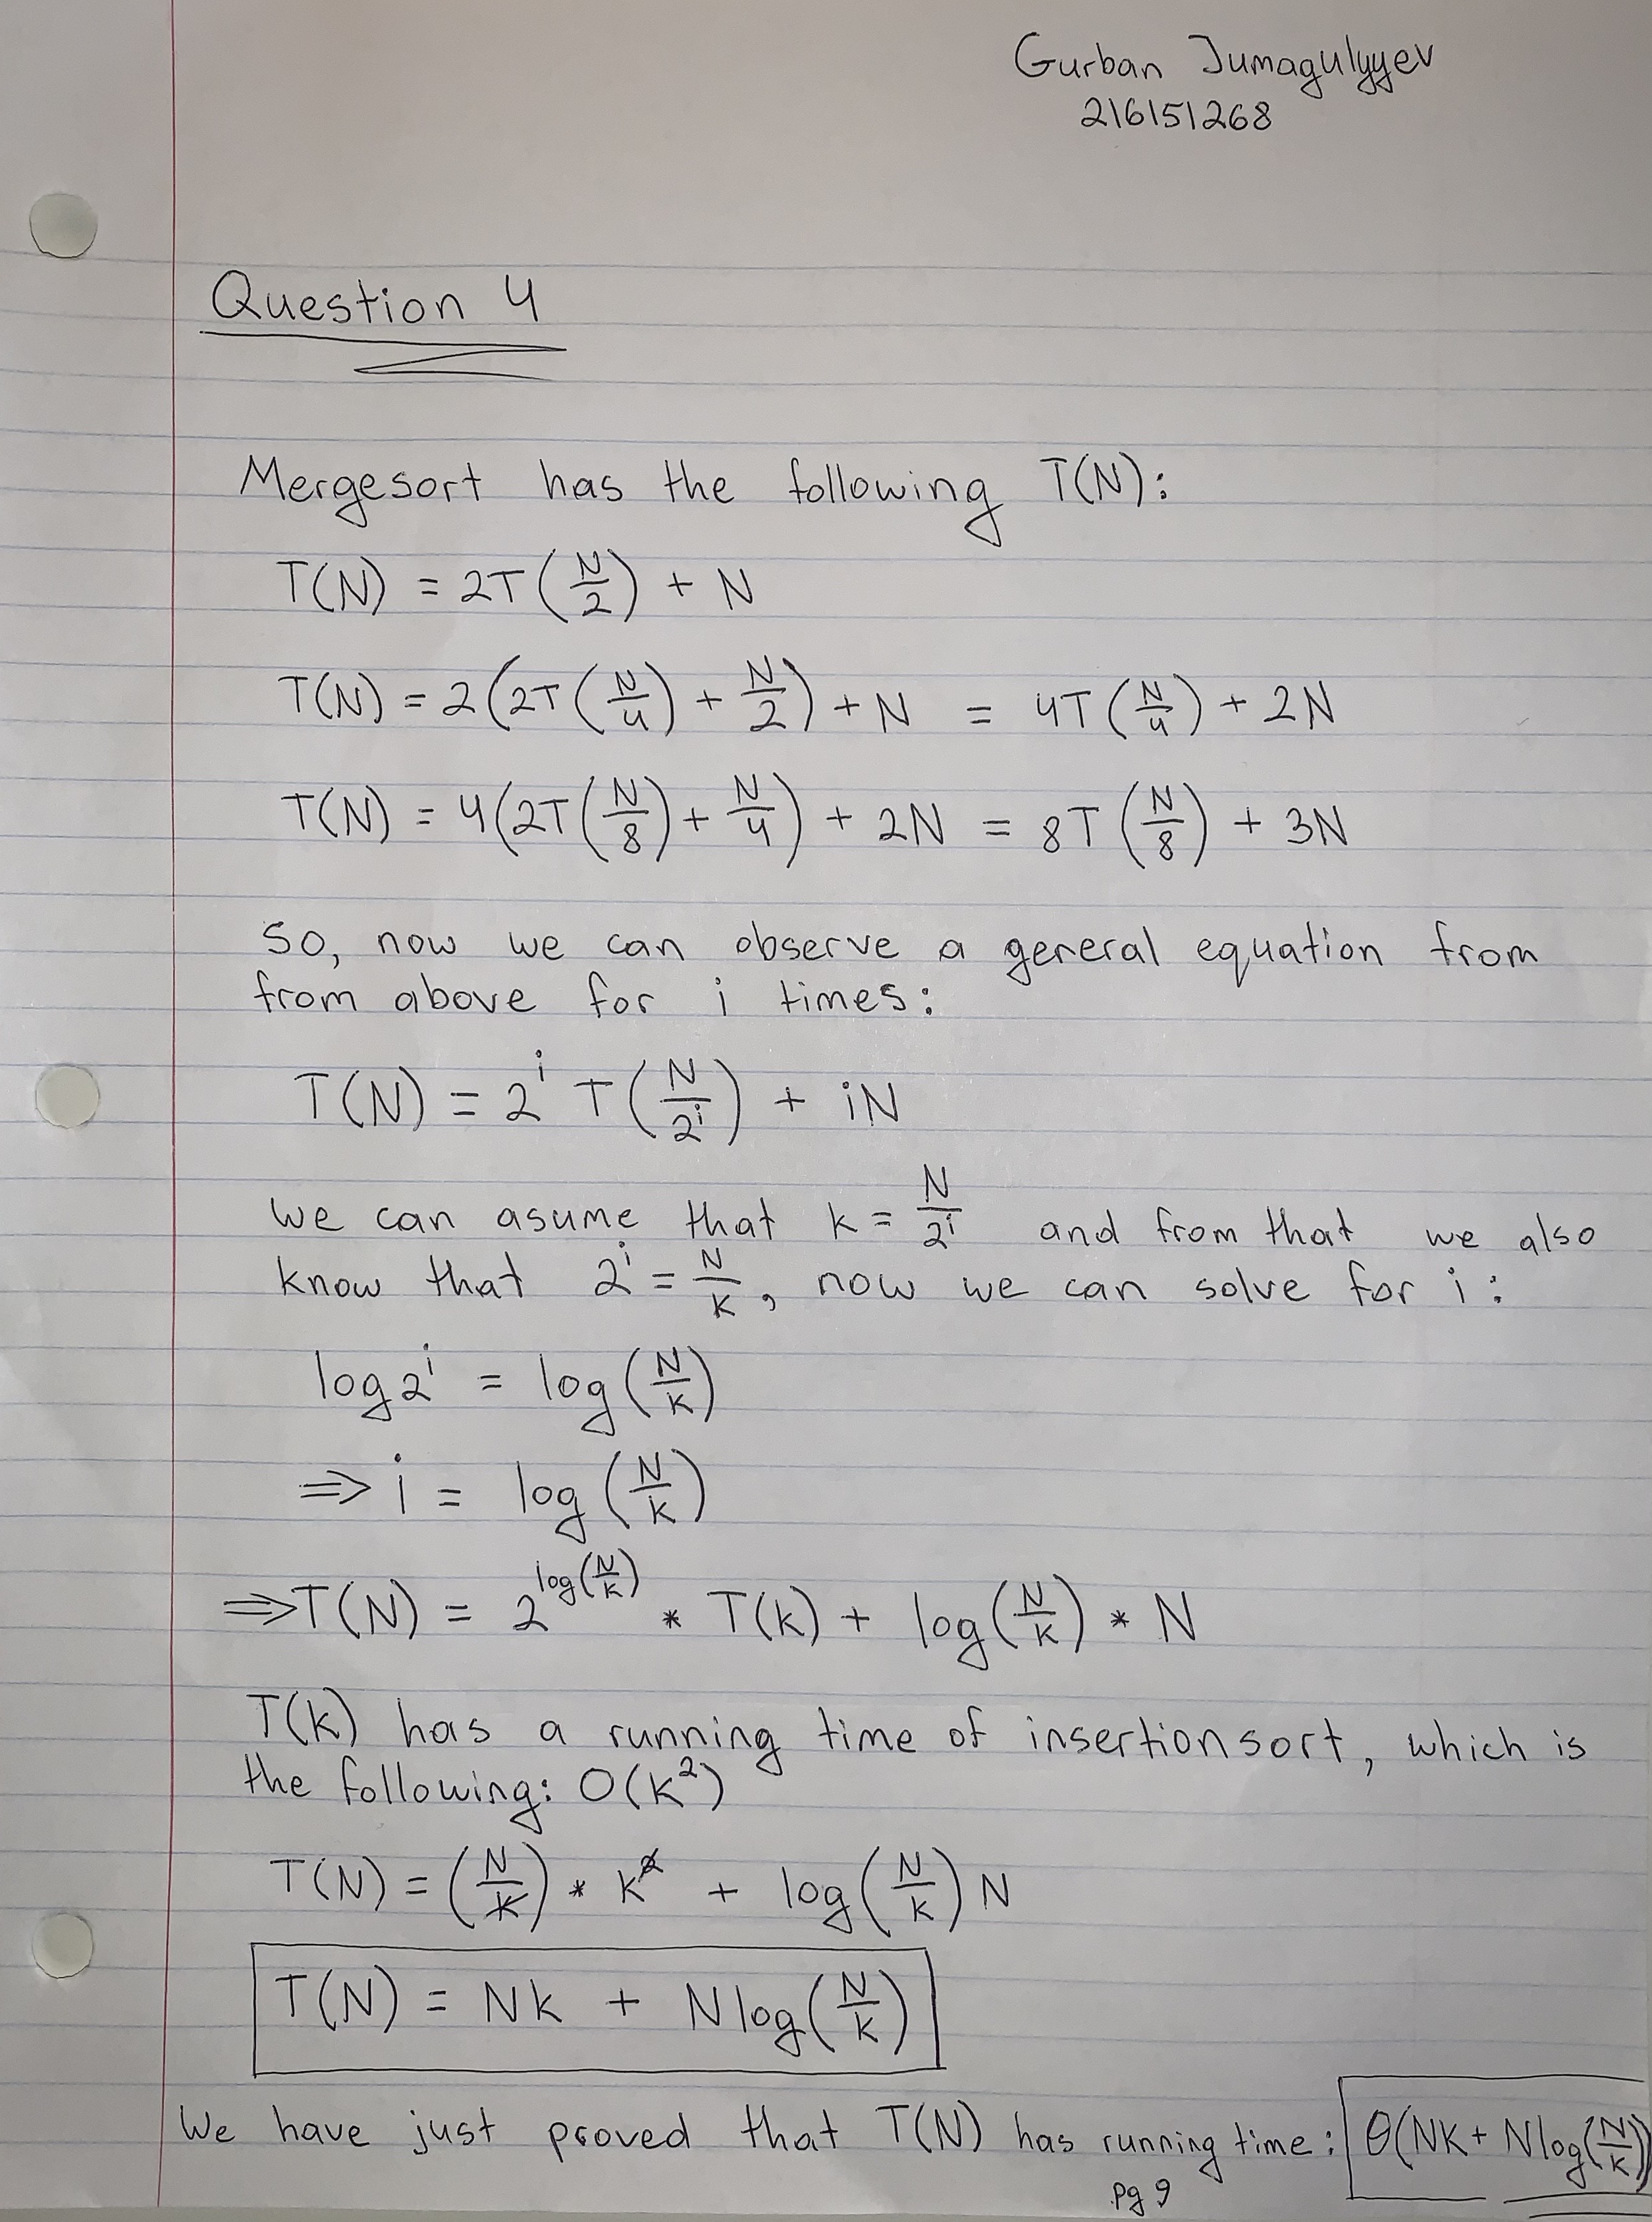 Gurban Jumagulyyev
216151268
Question 4
Mergesort has the following T(N):
T(N) = 2T(N/2) + N
T(N) = 2(2T(N/4) + N/2) + N = 4T(N/4) + 2N
T(N) = 4(2T(N/8) + N/4) + 2N = 8T(N/8) + 3N
So, now we can observe a general equation from
from above for i times:
T(N) = 2^i T(N/2^i) + iN
We can asume that k = N/2^i and from that we also
know that 2^i = N/k, now we can solve for i:
log 2^i = log(N/k)
⇒ i = log(N/k)
⇒ T(N) = 2^log(N/k) * T(k) + log(N/k) * N
T(k) has a running time of insertionsort, which is
the following: O(k^2)
T(N) = (N/k) * k^2 + log(N/k) N
T(N) = Nk + Nlog(N/k)
We have just proved that T(N) has running time: θ(NK + Nlog(N/k))
pg 9